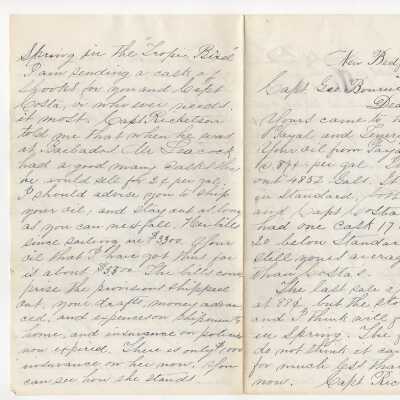 Spring in the "Tropic Bird"
I am sending a cask of
for you and Capt
Costa, or who ever needs
it most. Capt Richelson
told me that when he was
at Barbados Mr Peacock
had a good many casks that
he would sell for 2¢ per gal.
I should advise you to ship
your oil, and stay out as long
as you can next fall. Her bills
since sailing are $3300. Your
oil that I have got thus far
is about $3500. The bills com
prise the provisions shipped
out, your drafts, money advan
ced, and expenses on shipments
home, and insurance on policies
now expired. There is only $1,000
insurance on her now. You
can see how she stands.
New Bedf
Capt Geo Bourne
Dea
Yours came to
Fayal and Tener
Your oil from Faya
per gal.
out 4852 Galls. St
in Standard, both
and Capt Costa
had one cask 17
20 below Standar
sell yours averag
than Costas.
The last sale
at 88¢ but the sto
and I think will g
in Spring. The
do not think it can
for much less tha
now. Capt Ric